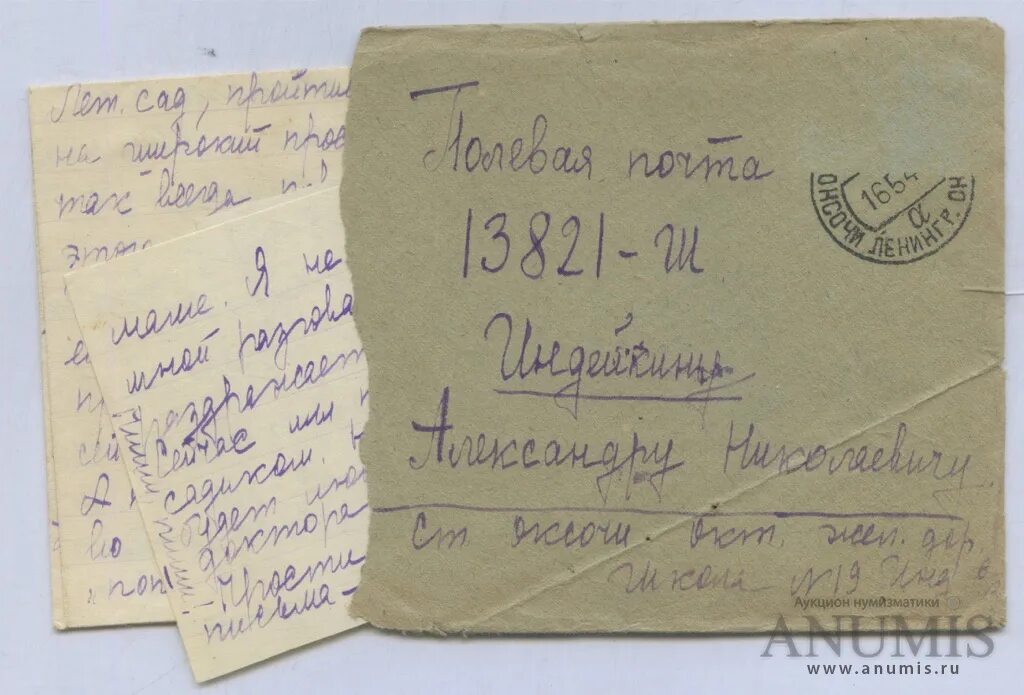 Лет. сад, пройтись
на широкий прос
так всегда
этом
маме. Я не
мной разгова
раздражает
Сейчас или
садиком.
будет
доктора
Прости
письма –
сей
Я
во
"поп
Полевая почта
13821-Ш
Индейкину
Александру Николаевичу
ст оксочи окт. жел. дор.
Школа N19 Инд
ОКСОЧИ ЛЕНИНГР. ОК
1654
а
Аукцион нумизматики
ANUMIS
www.anumis.ru